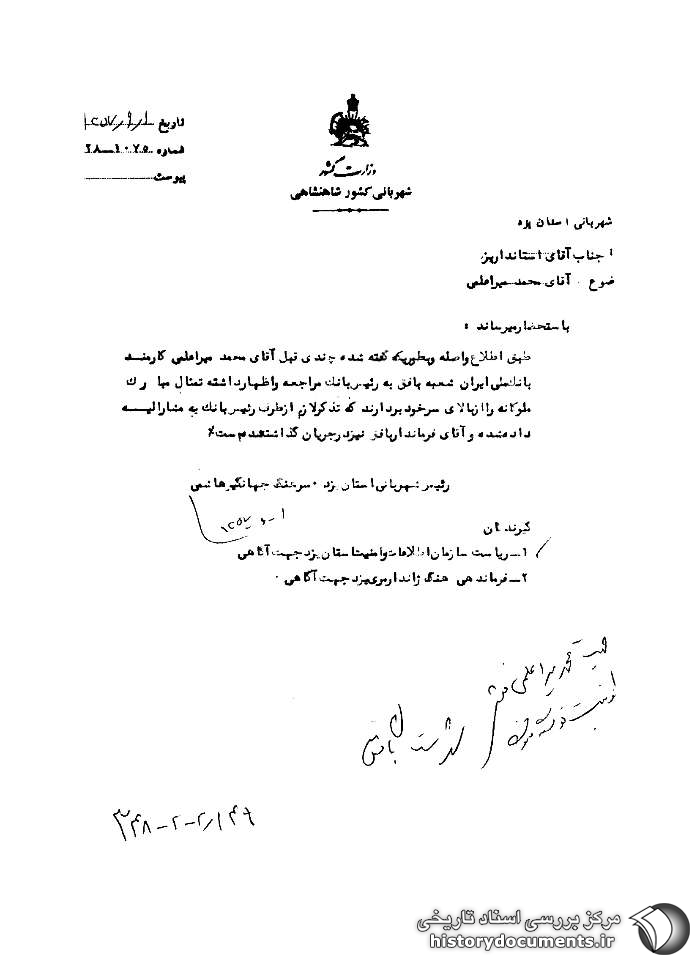 تاریخ ۱۳۵۷/۹/۱
شماره ۲۸-۱۰۷۵
پیوست
وزارت کشور
شهربانی کشور شاهنشاهی
شهربانی استان یزد
جناب آقای استاندار یزد
ضوع آقای محمد میراعلمی
باستحضار میرساند :
طبق اطلاع واصله وبطوریکه گفته شده چندی قبل آقای محمد میراعلمی کارمند
بانک ملی ایران شعبه بافق به رئیس بانک مراجعه واظهارداشته تمثال مبارک
ملوکانه را ازبالای سرخود بردارند که تذکر لازم ازطرف رئیس بانک به مشارالیه
داده شده و آقای فرماندار بافق نیزدرجریان گذاشته شده است٪
رئیس شهربانی استان یزد - سرهنگ جهانگیرهاشمی
گیرندگان
۱- ریاست سازمان اطلاعات وامنیت استان یزد جهت آگاهی
۲- فرماندهی هنگ ژاندارمری یزد جهت آگاهی .
محمد میراعلمی
بافق
مرکز بررسی اسناد تاریخی
historydocuments.ir